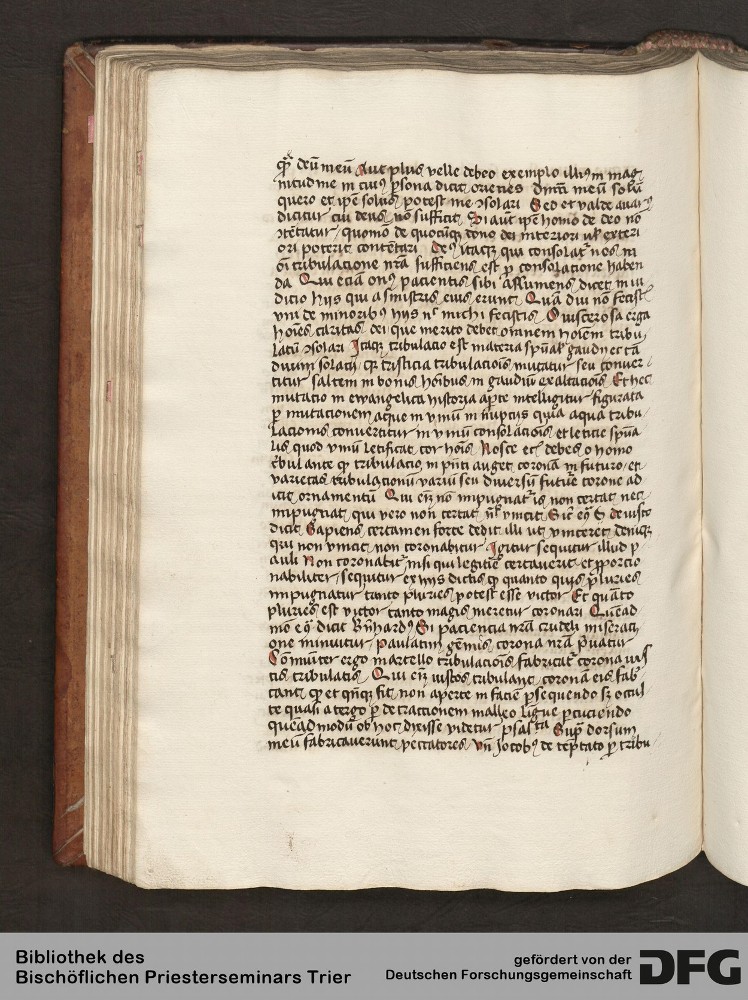 qr̄ deū meū Aut plus velle debeo exemplo illiꝰ in mag
nitudine in cuiꝰ ꝑsona dicit orieries dnm̄ meū solū
quero et ip̄e solus potest me ꝯsolari Sed et valde auarꝰ
dicitur cui deus nō sufficit Si aut̄ ip̄e homo de deo nō
ꝯtētatur quomō de quocūqꝫ dono dei interiori ul̄ exteri
ori poterit contētari Deꝰ itaqꝫ qui consolat̄ nos in
oī tribulacione nr̄a sufficiens est ꝓ consolacione haben
da Qui eciam onꝰ pacientis sibi assumens dicet in iu
dicio hijs qui a sinistris eius erunt Quā diu nō fecist
vni de minoribꝰ hijs nc̄ michi fecistis O viscerosa erga
hoīes caritas dei que merito debet omnem hoīem tribu
latū ꝯsolari Itaqꝫ tribulacio est materia spūal̄ gaudij et tā
diuum solacij qꝛ tristicia tribulacionis mutatur seu conuer
titur saltem in bonis hoībus in gaudiū exaltacionis Et hec
mutacio in ewangelica historia aperte intelligitur figurata
ꝑ mutacionem aque in vinū in nupcijs quia aqua tribu
lacionis conuertitur in vinū consolacionis et leticie spūa
lis quod vinū letificat cor hoīs Nosce etc̄ debes o homo
tribulante qꝫ tribulacio in pn̄ti auget coronā in futuro et
varietas tribulacionū variū seu diuersū futurē corone ad
icit ornamentū Qui eī nō impugnat̄ is non certat nec
impugnat qui vero non certat nō vincit Sic̄ eqꝫ d̄ de iusto
dicit Sapiens certamen forte dedit illi ut vinceret deniqꝫ
qui non vincit non coronabitur Igitur sequitur illud p
auli Non coronabit̄ nisi qui legitime certauerit et ꝓporcio
nabiliter sequitur ex hijs dictis qꝫ quanto quis pluries
impugnatur tanto pluries potest esse victor Et quāto
pluries est victor tanto magis meretur coronari Quēad
mō eqꝫ dicit Bn̄hardꝰ Si paciencia nr̄a crudeli miseraci
one minuitur paulatim gemīs corona nr̄a priuatur
Cōmūiter ergo martello tribulacionis fabricat̄ corona iuꝰ
tis tribulatis Qui eī iustos tribulant coronā eis fab
cant qꝫ et qn̄qꝫ fit non aperte in faciē ꝑsequendo sꝫ occul
te quasi a tergo ꝑ detractionem malleo ligue ꝑcuciendo
quēadmodū ob hoc dixisse videtur psalꝰta Supͣ dorsum
meū fabricauerunt peccatores Vn̄ Jacobꝰ de teptato ꝑ tribu
Bibliothek des
Bischöflichen Priesterseminars Trier
gefördert von der
Deutschen Forschungsgemeinschaft
DFG